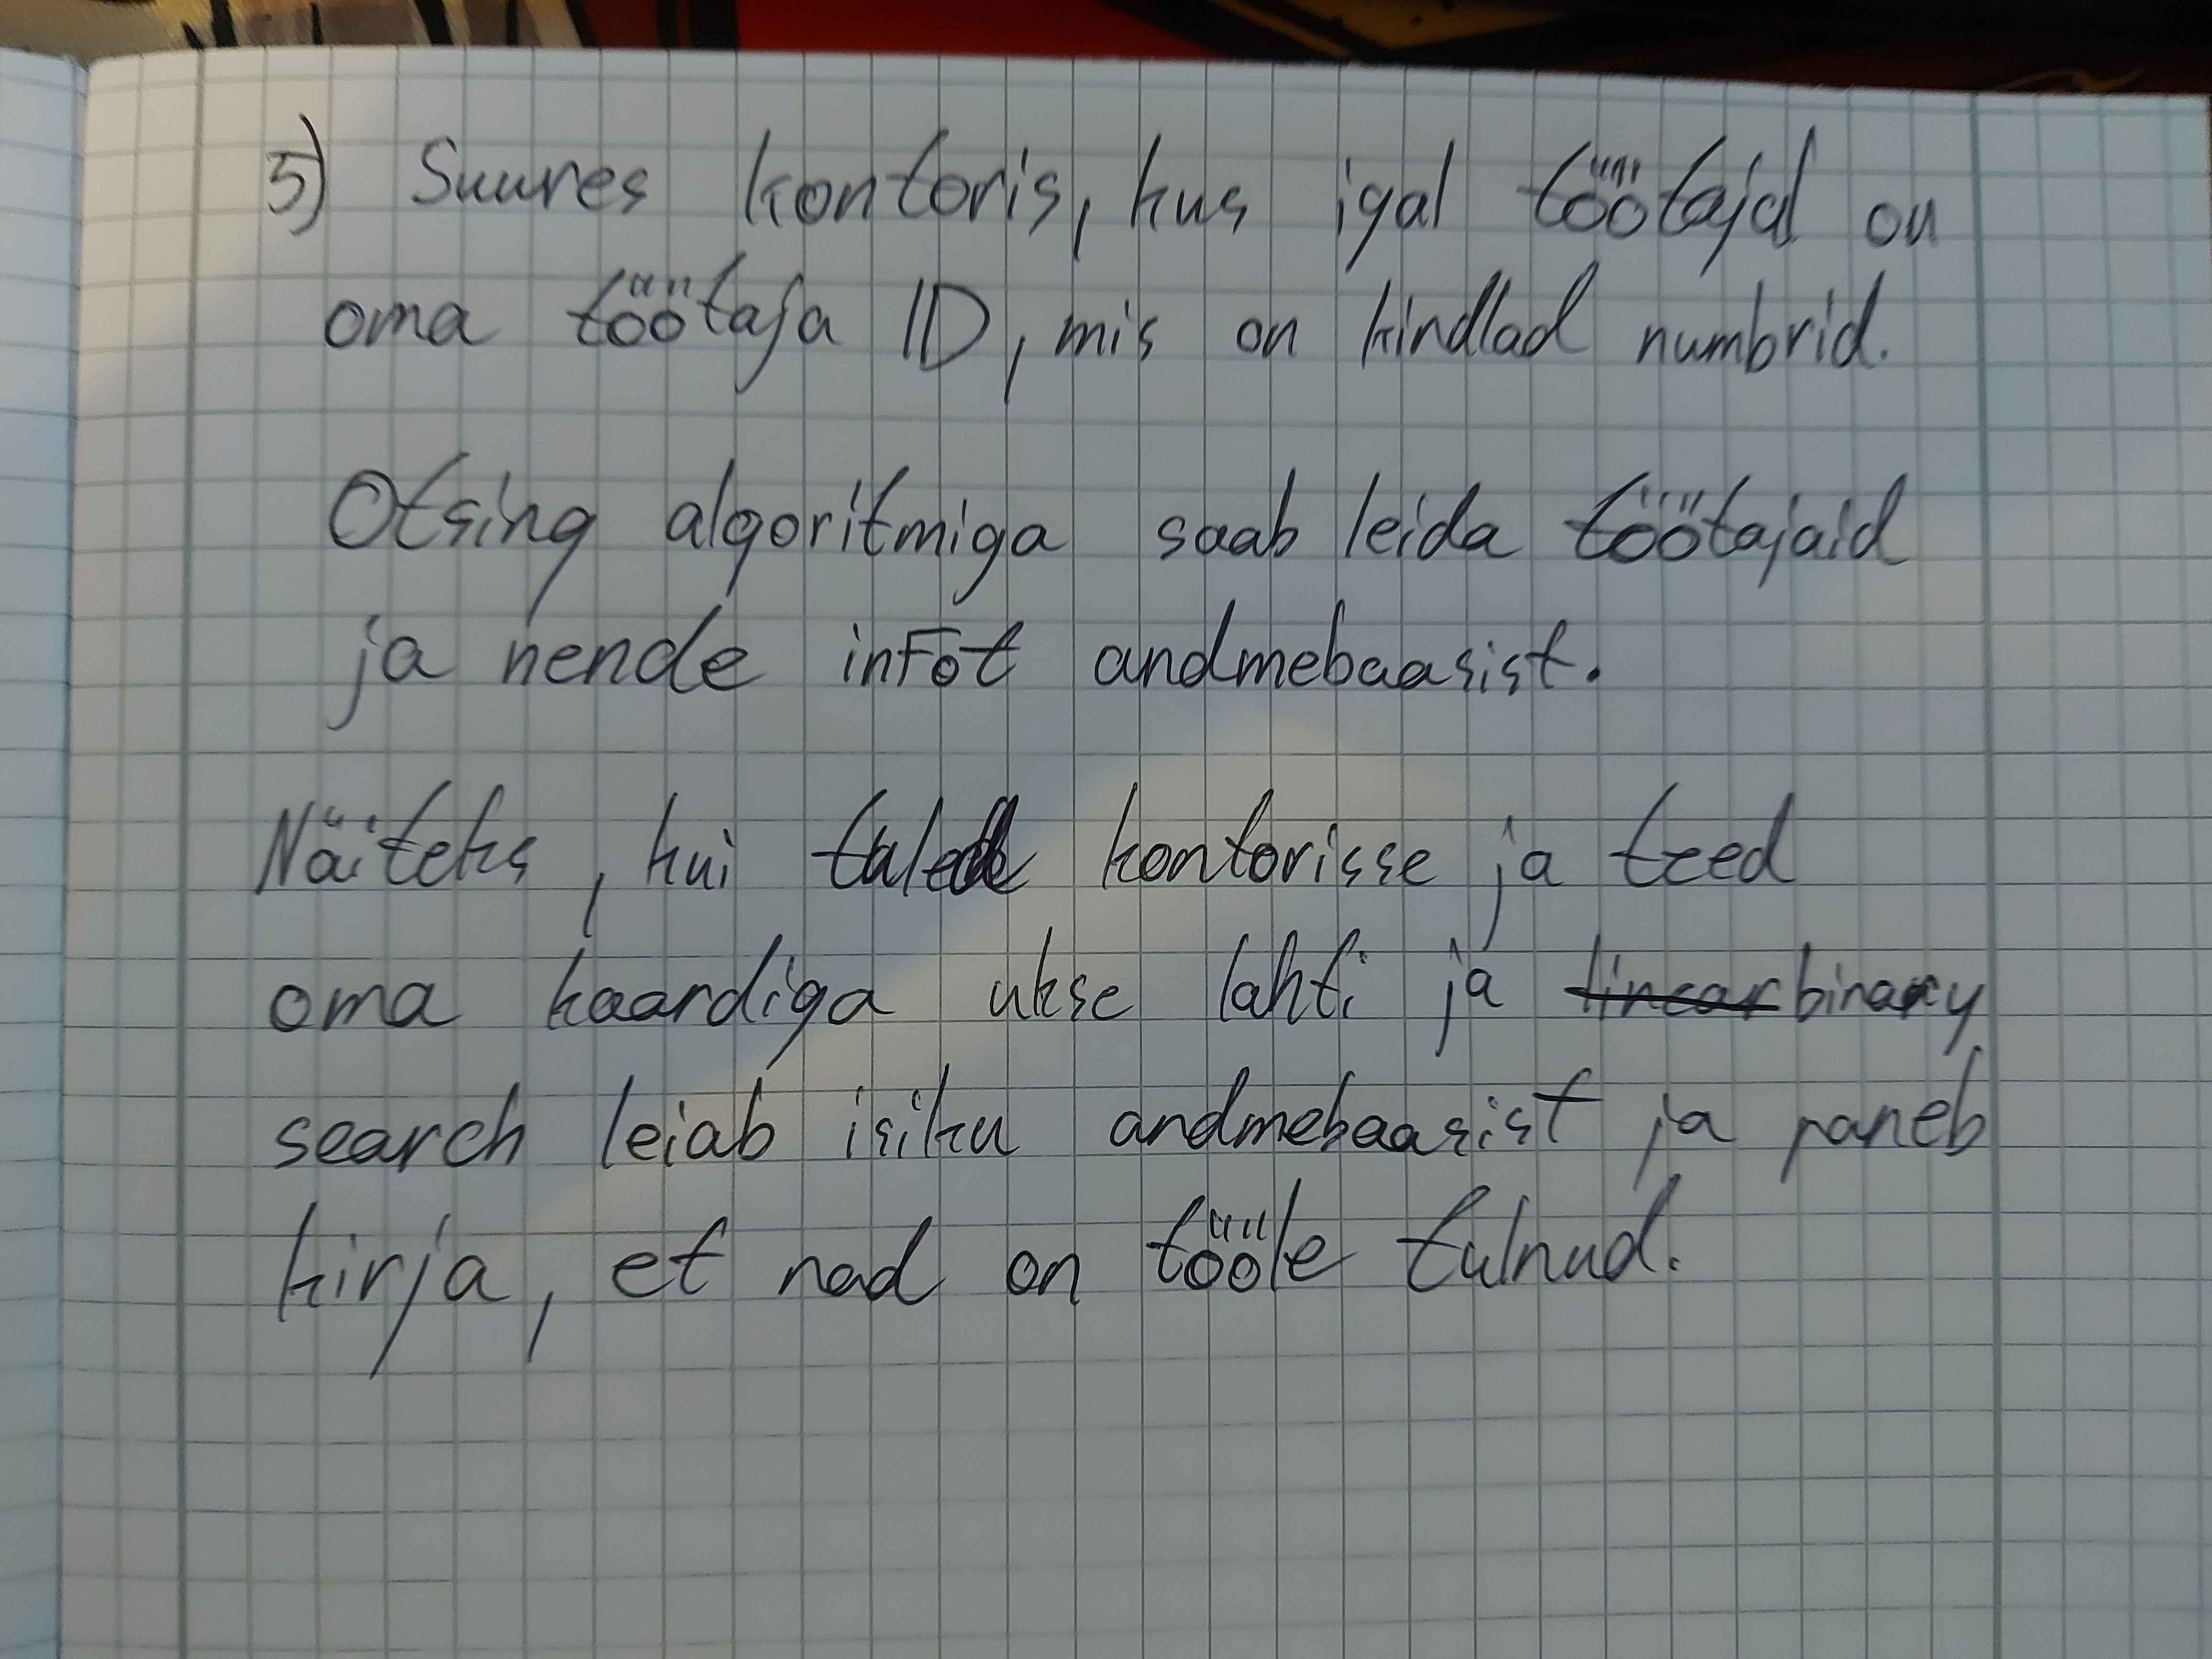 5) Suures kontoris, kus igal töötajal on
oma töötaja ID, mis on kindlad numbrid.
Otsing algoritmiga saab leida töötajaid
ja nende infot andmebaasist.
Näiteks, kui tuled kontorisse ja teed
oma kaardiga ukse lahti ja linear binary
search leiab isiku andmebaasist ja paneb
kirja, et nad on tööle tulnud.